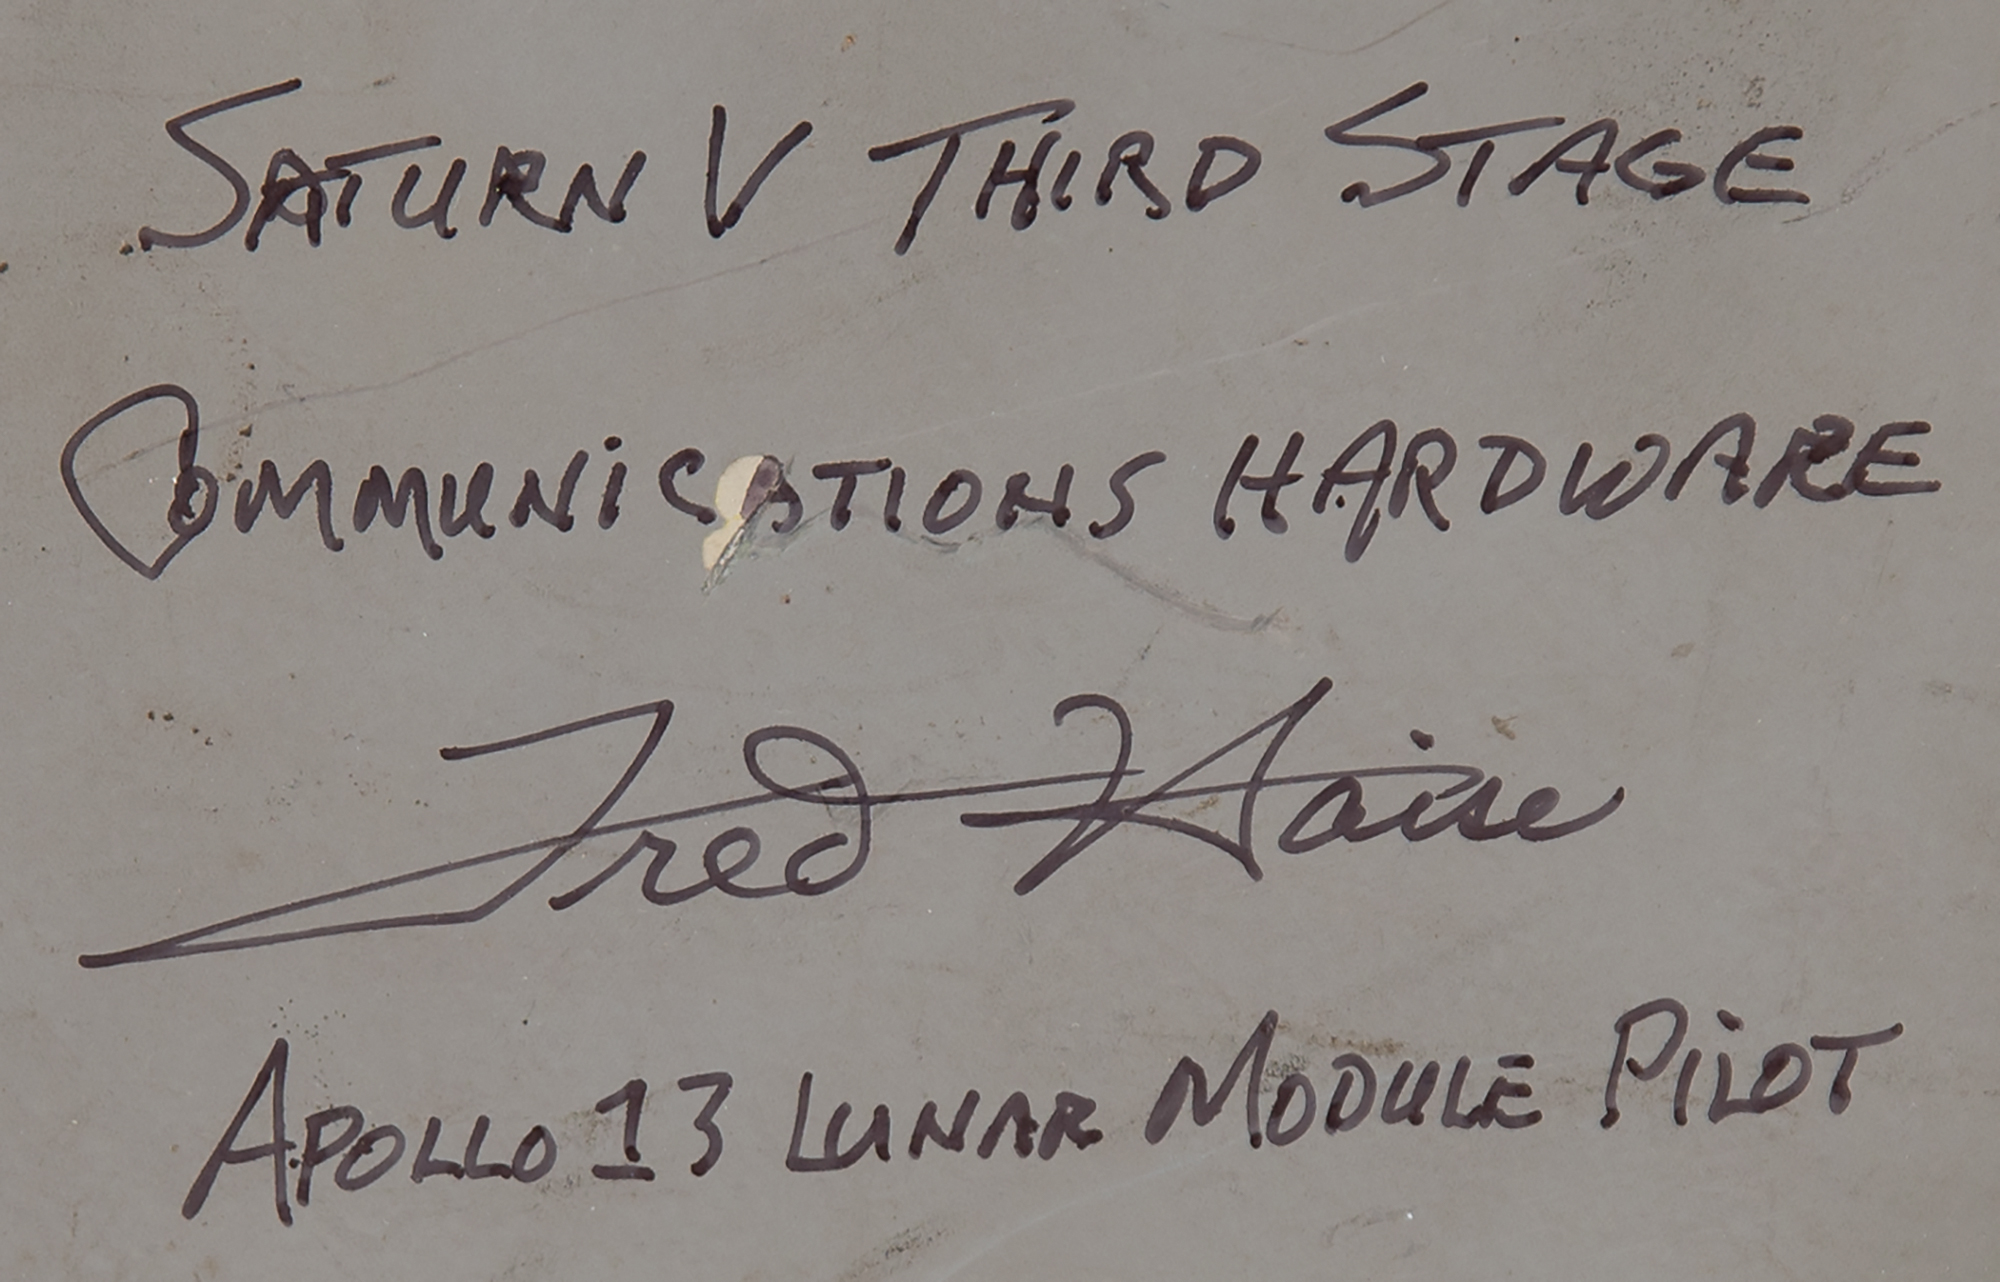 SATURN V THIRD STAGE
COMMUNICATIONS HARDWARE
Fred Haise
APOLLO 13 LUNAR MODULE PILOT